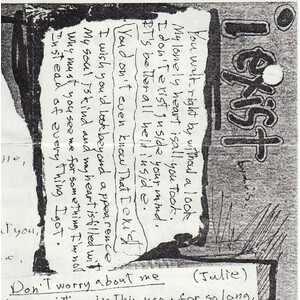 i exist
but...
You walk right by without a look
My lonely heart is all you took.
I don't exist inside your mind
It's better all held inside
You don't even know that I exist
I wish you'd look beyond appearence
My soul is kind and my heart is filled wit
Why must you see me for something I'm not
Instead of everything I got.
me,
at you,
Don't worry about me (Julie)
for so long,